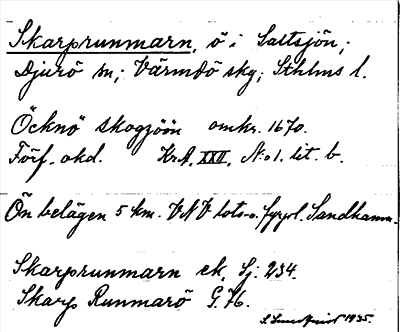 Skarprunmarn, ö i Saltsjön;
Djurö sn; Värmdö skg; Sthlms l.
Öcknö skogzöön omkr. 1670.
Förf. okd. Kr.A. XXII, No 1. lit. b.
Ön belägen 5 km. VNV lots-o. fyrpl. Sandhamn.
Skarprunmarn ek. Sj. 234.
Skarp Runmarö G. 76.
S. Lundqvist 1935.